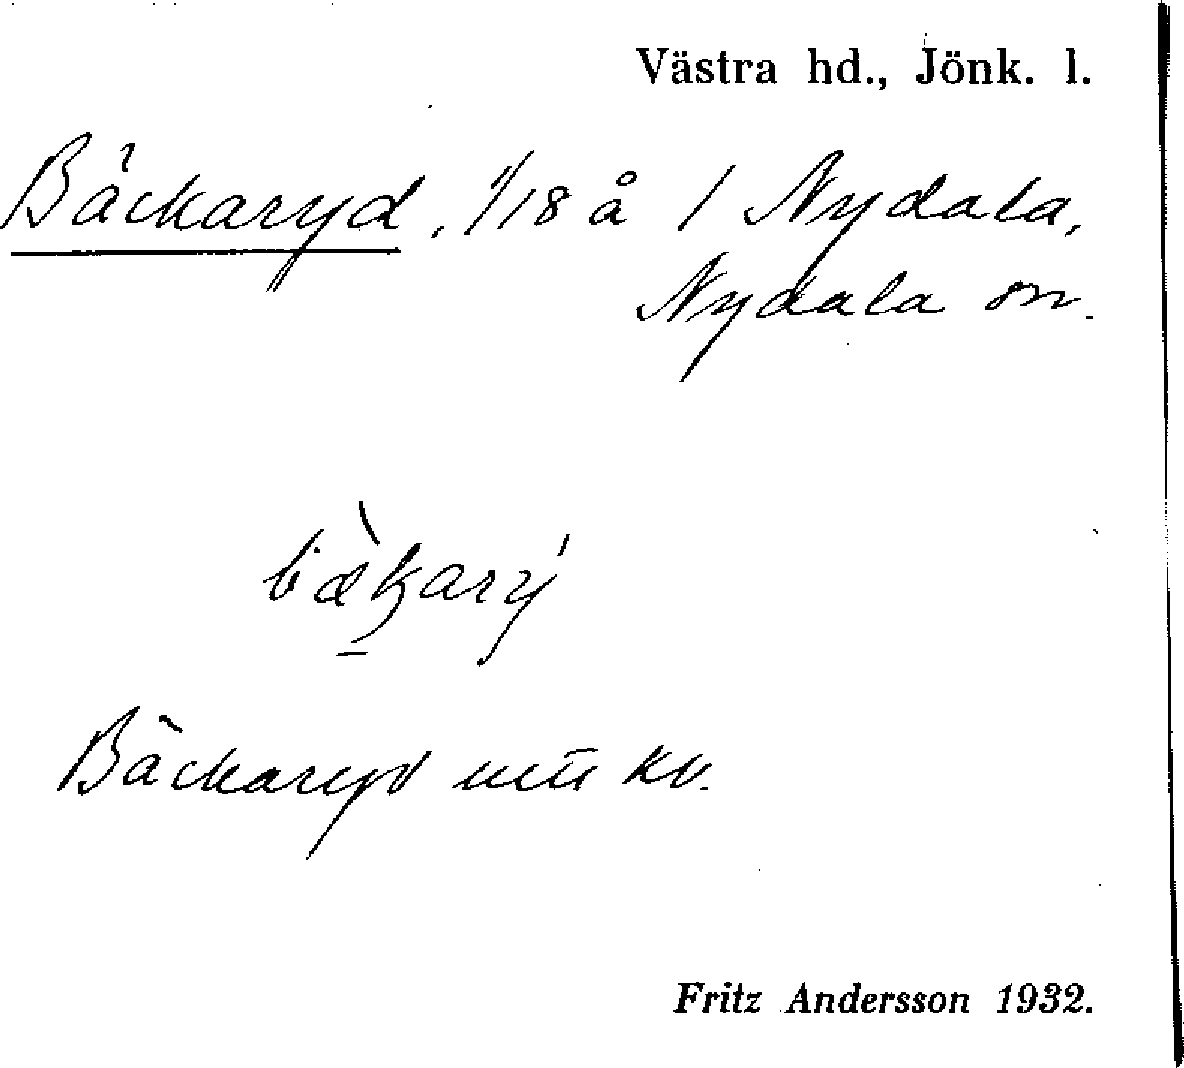 Västra hd., Jönk. l.
Bäckaryd, 1/18 å 1 Nydala,
Nydala sn.
Bäckaryd kv.
Fritz Andersson 1932.